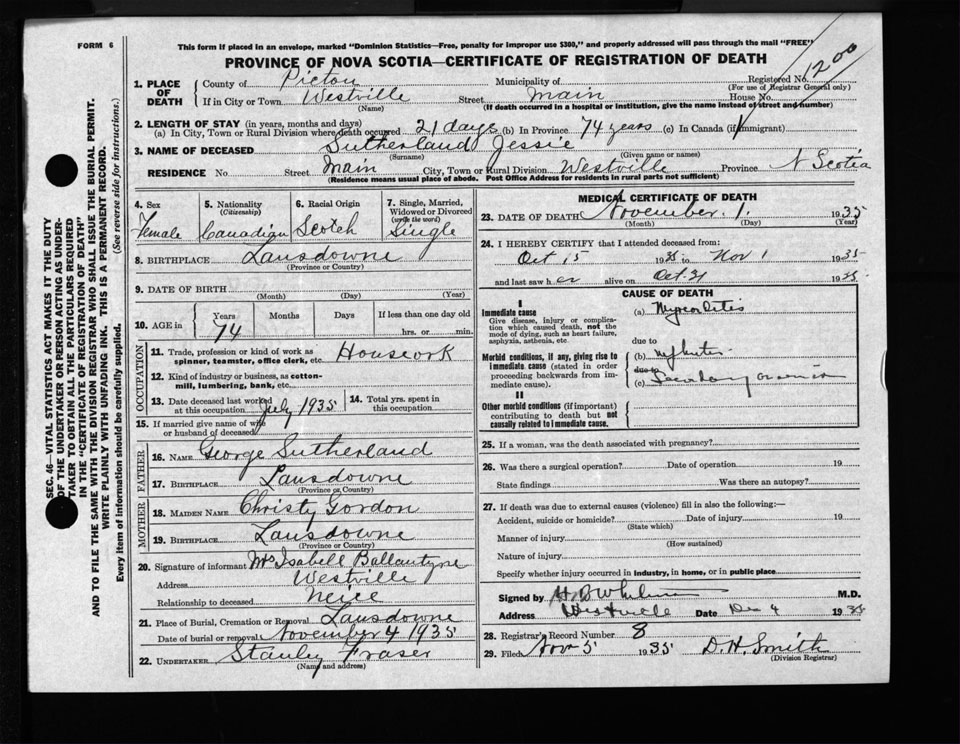 FORM 6
This form if placed in an envelope, marked "Dominion Statistics—Free, penalty for improper use $300," and properly addressed will pass through the mail "FREE"
PROVINCE OF NOVA SCOTIA—CERTIFICATE OF REGISTRATION OF DEATH
1200
1. PLACE OF DEATH
County of Pictou Municipality of Registered No.
(For use of Registrar General only)
If in City or Town Westville Street Main House No.
(Name) (If death occurred in a hospital or institution, give the name instead of street and number)
2. LENGTH OF STAY (in years, months and days)
(a) In City, Town or Rural Division where death occurred 21 days (b) In Province 74 years (c) In Canada (if immigrant)
3. NAME OF DECEASED Sutherland Jessie
(Surname) (Given name or names)
RESIDENCE No Street Main City, Town or Rural Division Westville Province N Scotia
(Residence means usual place of abode. Post Office Address for residents in rural parts not sufficient)
4. Sex Female
5. Nationality (Citizenship) Canadian
6. Racial Origin Scotch
7. Single, Married, Widowed or Divorced (write the word) Single
8. BIRTHPLACE Lansdowne
(Province or Country)
9. DATE OF BIRTH
(Month) (Day) (Year)
10. AGE in Years 74 Months Days If less than one day old
hrs. or min.
OCCUPATION
11. Trade, profession or kind of work as spinner, teamster, office clerk, etc. Housework
12. Kind of industry or business, as cotton-mill, lumbering, bank, etc.
13. Date deceased last worked at this occupation July 1935
14. Total yrs. spent in this occupation
15. If married give name of wife or husband of deceased
FATHER
16. NAME George Sutherland
17. BIRTHPLACE Lansdowne
(Province or Country)
MOTHER
18. MAIDEN NAME Christy Gordon
19. BIRTHPLACE Lansdowne
(Province or Country)
20. Signature of informant Mrs Isabell Ballantyne
Address Westville
Relationship to deceased Neice
21. Place of Burial, Cremation or Removal Lansdowne
Date of burial or removal November 4 1935
22. UNDERTAKER Stanley Fraser
(Name and address)
MEDICAL CERTIFICATE OF DEATH
23. DATE OF DEATH November 1 1935
(Month) (Day) (Year)
24. I HEREBY CERTIFY that I attended deceased from:
Oct 15 1935 to Nov 1 1935
and last saw her alive on Oct 31 1935
CAUSE OF DEATH
I
Immediate cause
Give disease, injury or complication which caused death, not the mode of dying, such as heart failure, asphyxia, asthenia, etc.
(a) Myocarditis
due to
Morbid conditions, if any, giving rise to immediate cause (stated in order proceeding backwards from immediate cause).
(b) Nephritis
due to
(c) Secondary
II
Other morbid conditions (if important) contributing to death but not causally related to immediate cause.
25. If a woman, was the death associated with pregnancy?
26. Was there a surgical operation? Date of operation 19
State findings Was there an autopsy?
27. If death was due to external causes (violence) fill in also the following:—
Accident, suicide or homicide? Date of injury 19
(State which)
Manner of injury
(How sustained)
Nature of injury
Specify whether injury occurred in industry, in home, or in public place
Signed by M.D.
Address Westville Date 4 1935
28. Registrar's Record Number 8
29. Filed Nov 5 1935 D. H. Smith
(Division Registrar)
SEC. 46—VITAL STATISTICS ACT MAKES IT THE DUTY
OF THE UNDERTAKER OR PERSON ACTING AS UNDER-
TAKER TO OBTAIN ALL THE PARTICULARS REQUIRED
IN THE "CERTIFICATE OF REGISTRATION OF DEATH"
AND TO FILE THE SAME WITH THE DIVISION REGISTRAR WHO SHALL ISSUE THE BURIAL PERMIT.
WRITE PLAINLY WITH UNFADING INK. THIS IS A PERMANENT RECORD.
Every item of information should be carefully supplied. (See reverse side for instructions.)